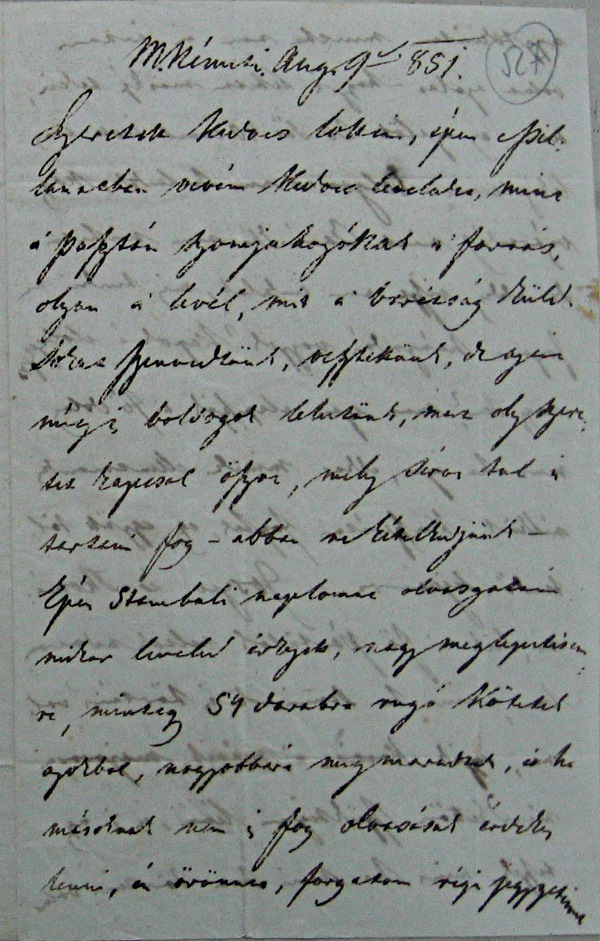 M.Németi. Aug. 9d 851.
527
Szeretett Kedves lelkem, épen e pil-
lanatban vevém Kedves leveledet, mint
a pusztán szomjahozókat a forrás,
olyan a levél, mit a barátság küld.
Sokat szenvedtünk, vesztettünk, de azért
mégis boldogok lehetünk, mert oly szere-
tet kapcsol össze, mely síron túl is
tartani fog – abban ne kételkedjünk –
Épen Stambuli naplomat olvasgatám
mikor leveled érkezett, nagy meglepetésem-
re, mintegy 54 darabra rugó kötetet
azokbol, nagyobbára megmaradtak, és ha
másoknak nem is fog olvasását érdekes
lenni, én örömmel forgatom régi jegyzeteimet